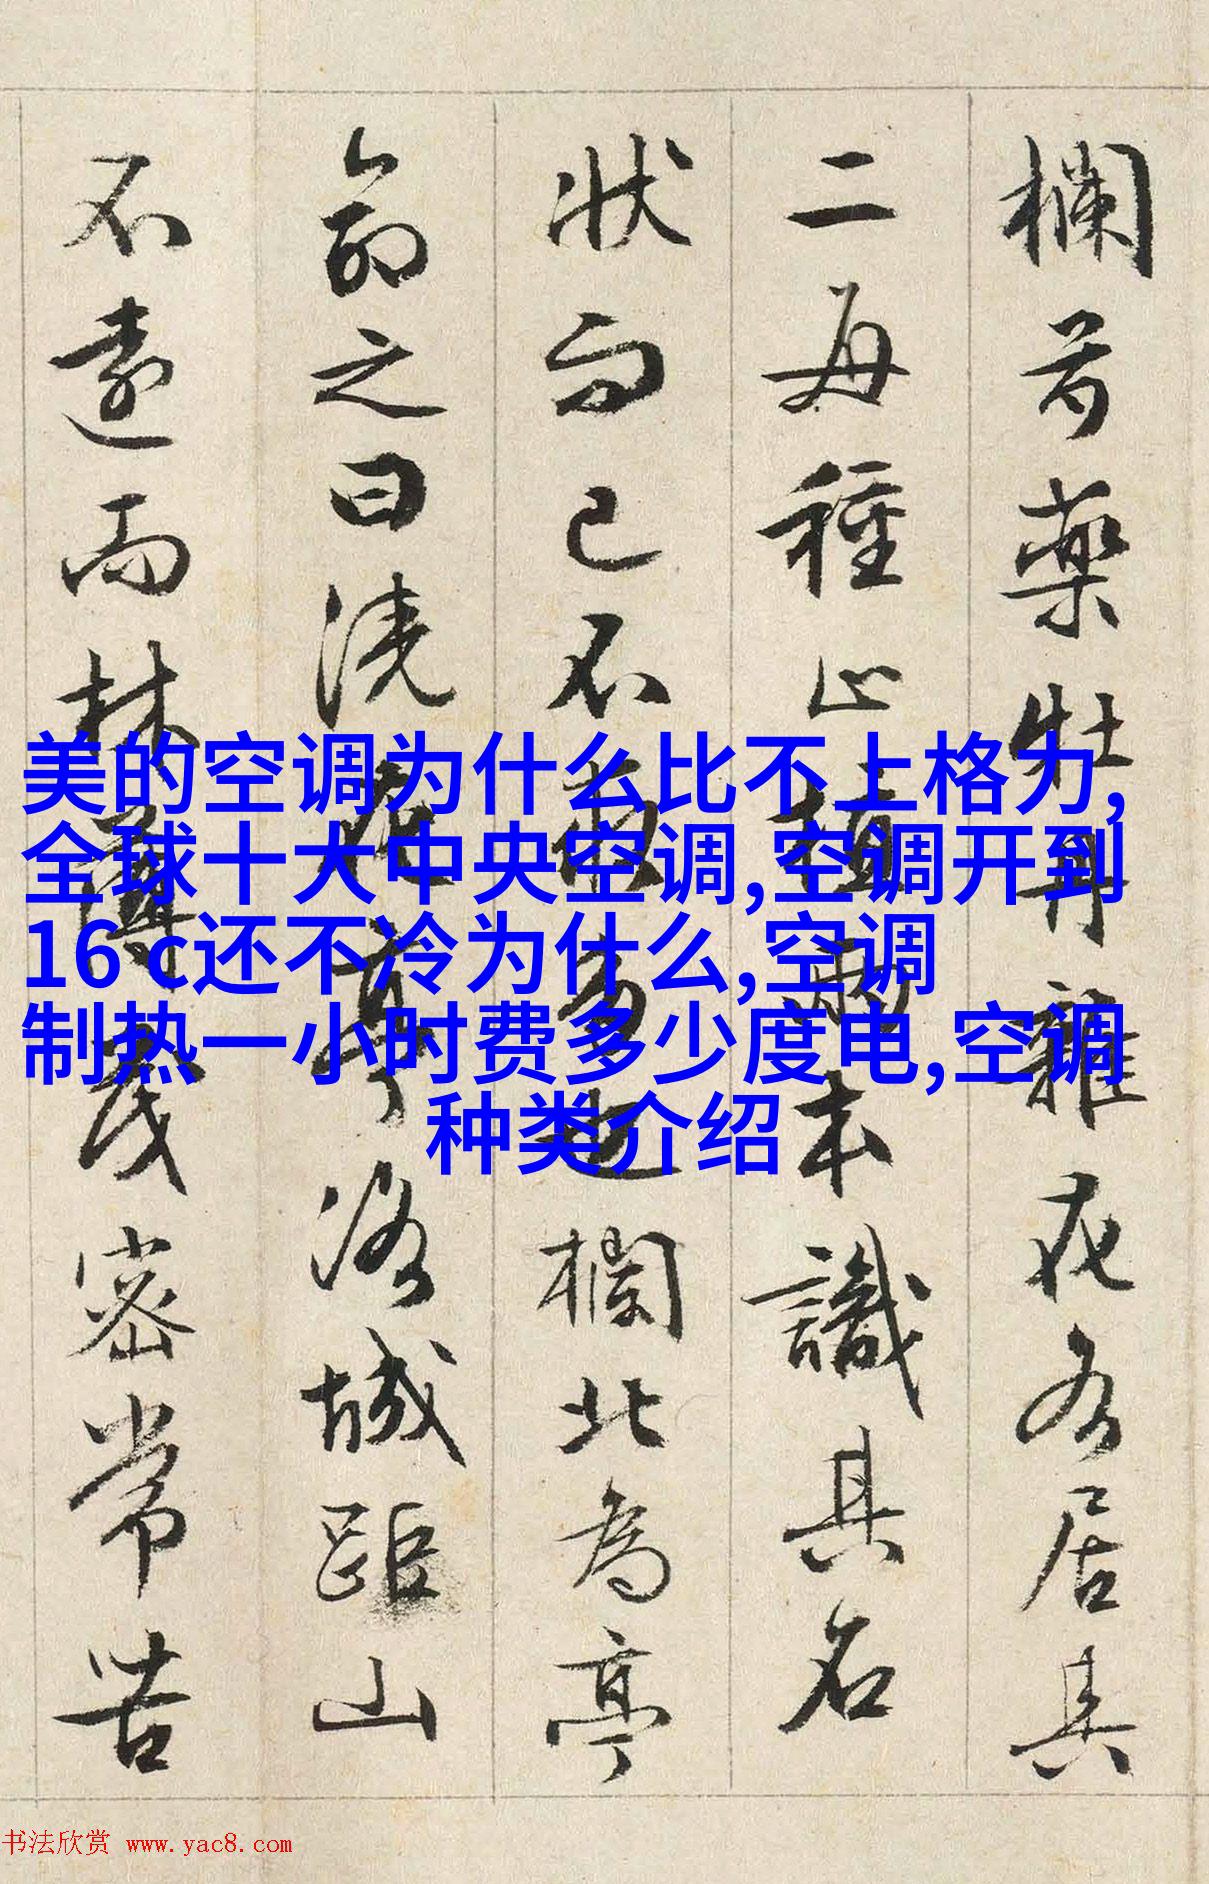 欄芍藥牡丹雜花各居其
二每種止植兩本識其名
狀而已不求多也欄北為亭
命之曰澆花亭洛城距山
不遠而林薄茂密常苦
美的空调为什么比不上格力,
全球十大中央空调,空调开到
16 c还不冷为什么,空调
制热一小时费多少度电,空调
种类介绍
书法欣赏 www.yac8.com